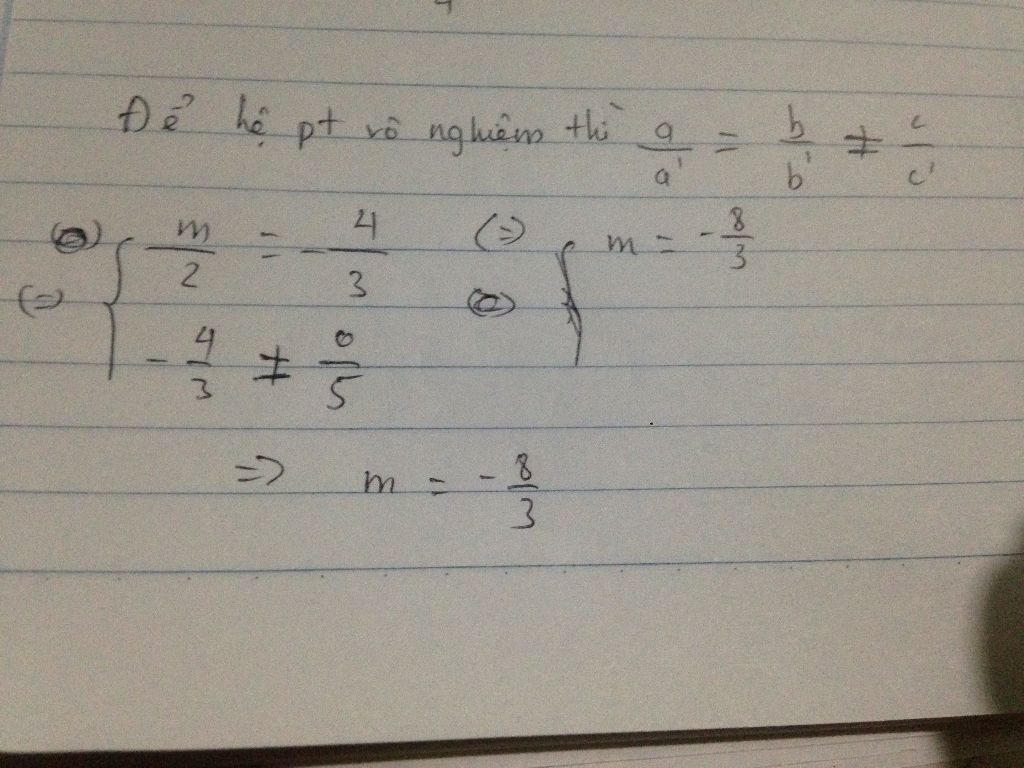 Để hệ pt vô nghiệm thì a/a' = b/b' ≠ c/c'
(=) { m/2 = - 4/3 (=) { m = - 8/3
- 4/3 ≠ 0/5
=> m = - 8/3